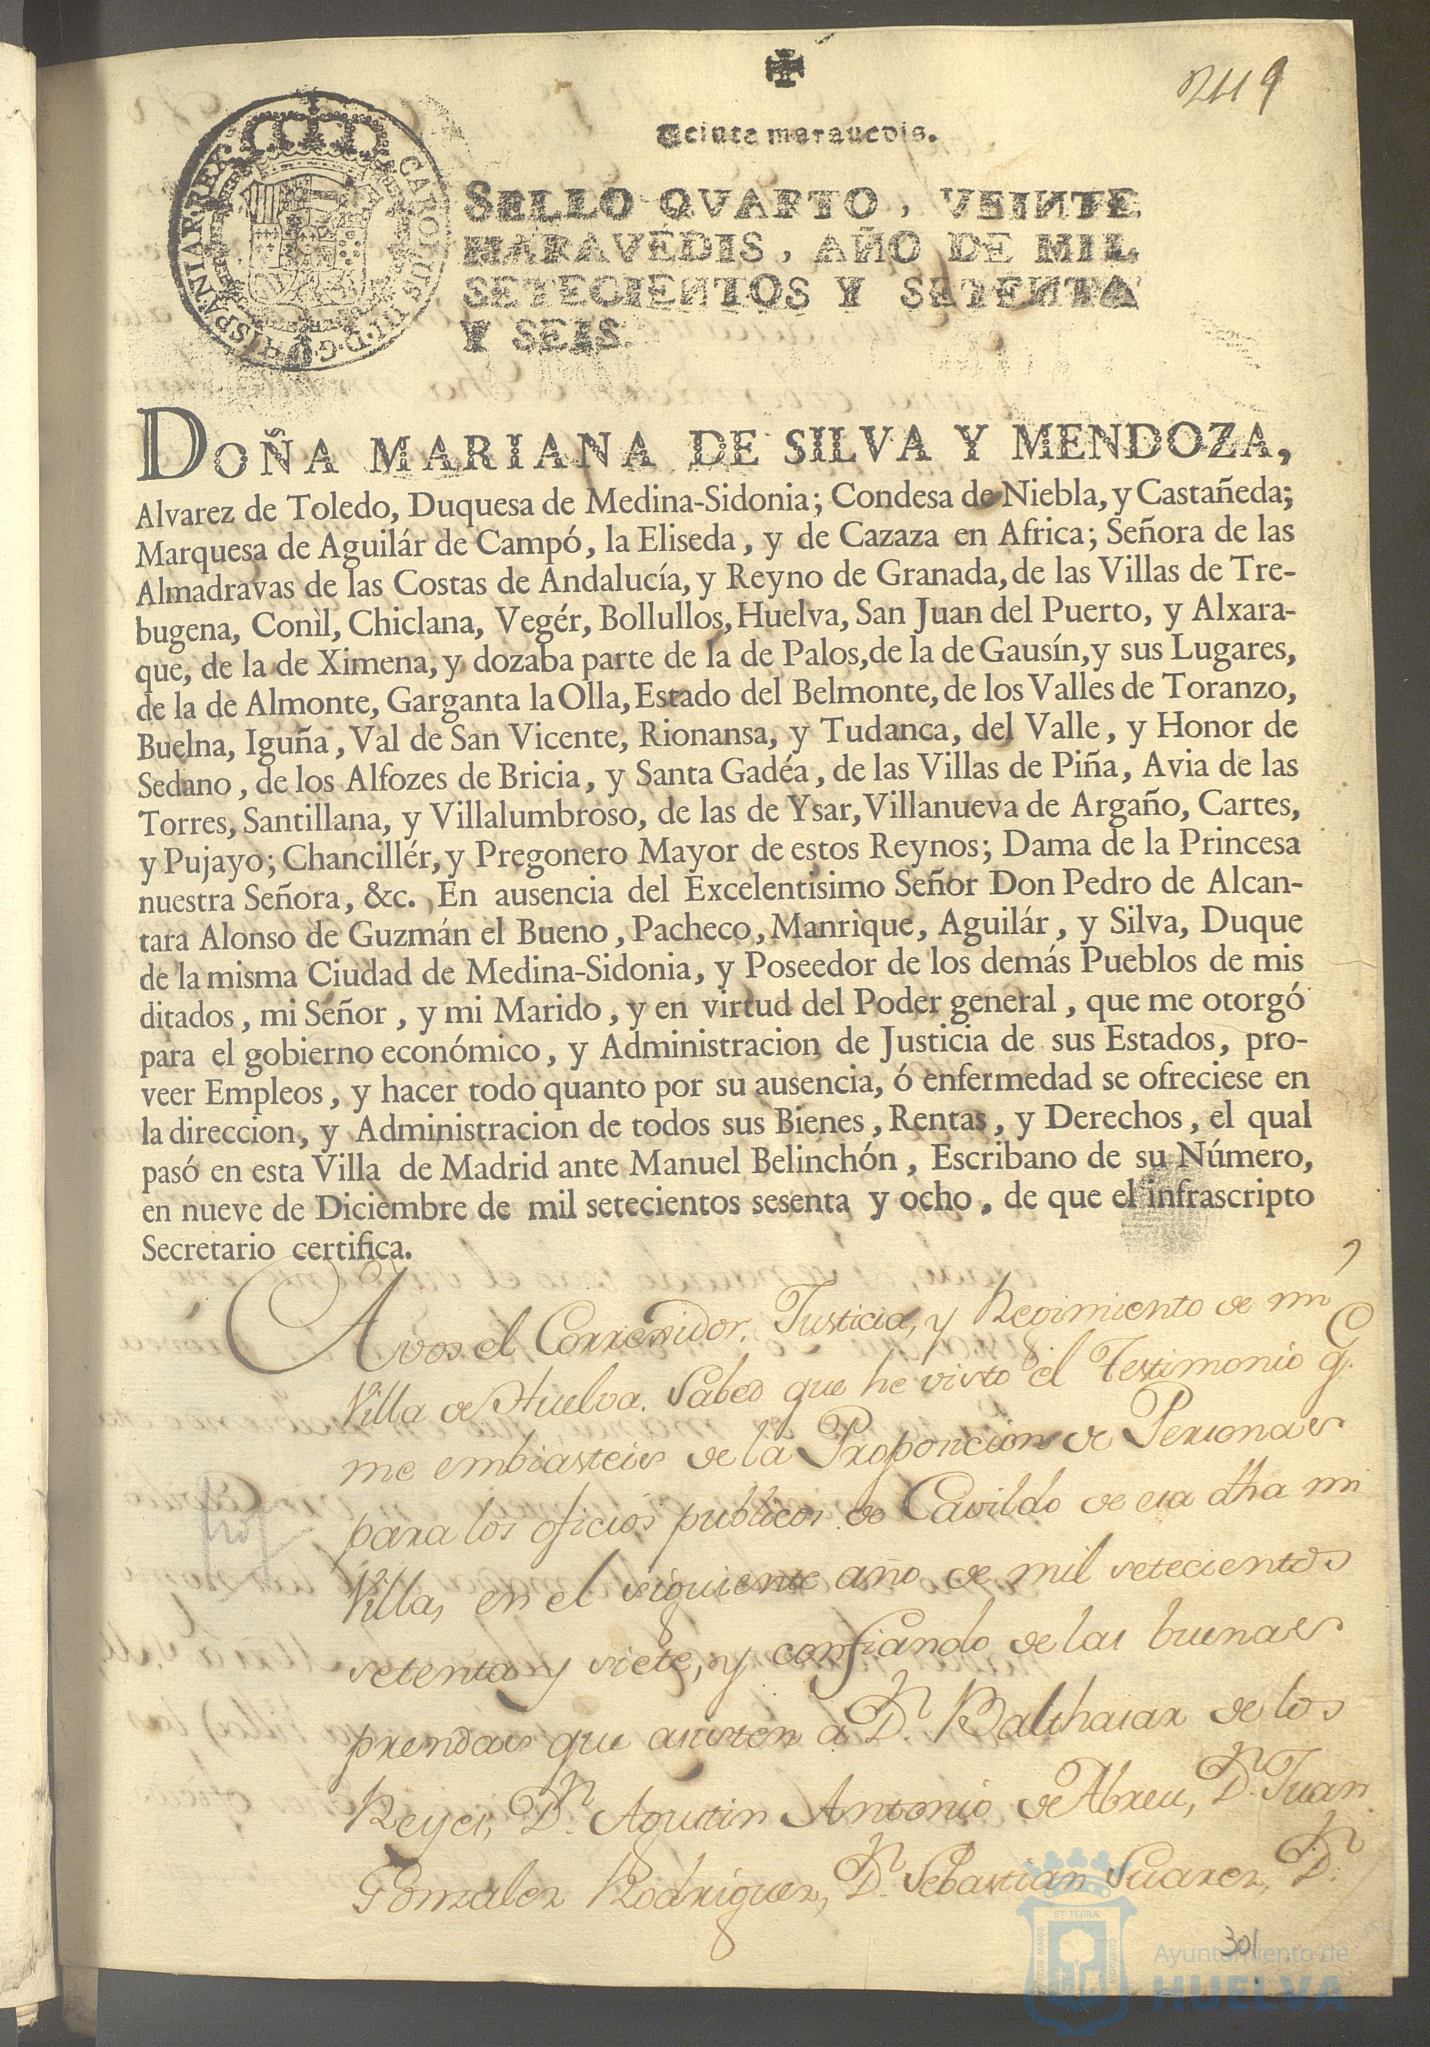 249
Veinte maravedis.
CAROLUS III D.G. HISPANIAR. REX
SELLO QVARTO, VEINTE
MARAVEDIS, AÑO DE MIL
SETECIENTOS Y SETENTA
Y SEIS.
DOÑA MARIANA DE SILVA Y MENDOZA,
Alvarez de Toledo, Duquesa de Medina-Sidonia; Condesa de Niebla, y Castañeda;
Marquesa de Aguilár de Campó, la Eliseda, y de Cazaza en Africa; Señora de las
Almadravas de las Costas de Andalucía, y Reyno de Granada, de las Villas de Tre-
bugena, Conìl, Chiclana, Vegér, Bollullos, Huelva, San Juan del Puerto, y Alxara-
que, de la de Ximena, y dozaba parte de la de Palos, de la de Gausín, y sus Lugares,
de la de Almonte, Garganta la Olla, Estado del Belmonte, de los Valles de Toranzo,
Buelna, Iguña, Val de San Vicente, Rionansa, y Tudanca, del Valle, y Honor de
Sedano, de los Alfozes de Bricia, y Santa Gadéa, de las Villas de Piña, Avia de las
Torres, Santillana, y Villalumbroso, de las de Ysar, Villanueva de Argaño, Cartes,
y Pujayo; Chancillér, y Pregonero Mayor de estos Reynos; Dama de la Princesa
nuestra Señora, &c. En ausencia del Excelentisimo Señor Don Pedro de Alcan-
tara Alonso de Guzmán el Bueno, Pacheco, Manrique, Aguilár, y Silva, Duque
de la misma Ciudad de Medina-Sidonia, y Poseedor de los demás Pueblos de mis
ditados, mi Señor, y mi Marido, y en virtud del Poder general, que me otorgó
para el gobierno económico, y Administracion de Justicia de sus Estados, pro-
veer Empleos, y hacer todo quanto por su ausencia, ó enfermedad se ofreciese en
la direccion, y Administracion de todos sus Bienes, Rentas, y Derechos, el qual
pasó en esta Villa de Madrid ante Manuel Belinchón, Escribano de su Número,
en nueve de Diciembre de mil setecientos sesenta y ocho, de que el infrascripto
Secretario certifica.
A vos el Corregidor, Justicia, y Regimiento de mi
Villa de Huelva. Sabed que he visto el Testimonio q.e
me embiasteis de la Proposicion de Personas
para los oficios publicos de Cavildo de esa dha mi
Villa, en el siguiente año de mil setecientos
setenta y siete, y confiando de las buenas
prendas que asisten a D.n Balthasar de los
Reyes, D.n Agustin Antonio de Abreu, D.n Juan
Gonzalez Rodriguez, D.n Sebastian Suarez, D.n
301
Ayuntamiento de
HUELVA